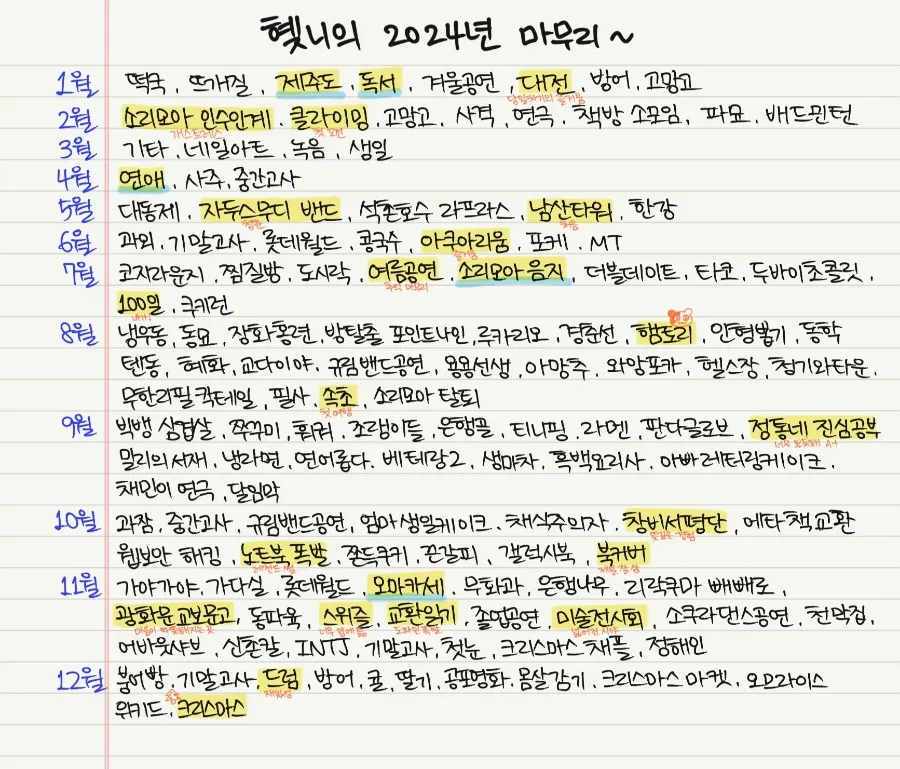 혯니의 2024년 마무리~
1월 떡국, 뜨개질, 제주도, 독서, 겨울공연, 대전, 방어, 고망고
2월 소리모아 인수인계. 클라이밍, 고망고. 사격, 연극. 책방 소모임, 파묘. 배드민턴
3월 기타. 네일아트, 녹음, 생일
4월 연애, 사주, 중간고사
5월 대동제, 자두스무디 밴드, 석촌호수 라프라스, 남산타워, 한강
6월 과외, 기말고사, 롯데월드, 콩국수, 아쿠아리움, 포케. MT
7월 코지라운지, 찜질방, 도시락, 여름공연, 소리모아 음지, 더블데이트, 타코, 두바이초콜릿,
100일, 쿠키런
8월 냉우동, 동묘, 장화홍련, 방탈출 포인트나인, 루카리오, 경춘선, 햄토리, 안형불기, 동학
텐동, 혜화, 교다이야. 규림밴드공연, 용용선생, 아망추, 와앙포카, 헬스장, 참기와타운.
무한리필 칵테일, 필사, 속초, 소리모아 탈퇴
첫 여행
9월 빅뱅 삼겹살, 쭈꾸미, 훠궈, 조랭이들, 은행골, 티니핑, 라멘, 판다글로브, 정통네 진심공부
밀리의서재, 냉라면, 연어롭다. 베테랑2, 생마차, 흑백요리사, 아빠 레터링케이크,
채민이 연극, 달임악
10월 과잠, 중간고사, 규림밴드공연, 엄마 생일케이크. 채식주의자, 창비서평단, 에타 책 교환
웹보안 해킹, 노트북 폭발, 쫀득쿠키, 끈갈피, 갤럭시북, 북커버
11월 가야가야, 가다실, 롯데월드, 오마카세, 무화과, 은행나무, 리락쿠마 빼빼로,
광화문교보문고, 동파육, 스위즐, 교환일기, 졸업공연, 미술전시회, 소쿠라댄스공연, 천막집,
어바웃샤브, 신촌칼, INTJ, 기말고사, 첫눈, 크리스마스 채플, 정해인
12월 붕어빵, 기말고사, 드럼, 방어, 귤, 딸기, 공포영화, 몸살감기. 크리스마스 마켓. 오므라이스
위키드, 크리스마스